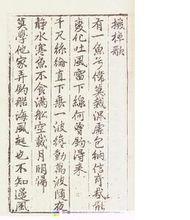 撥棹歌
有一魚兮偉莫裁混虛包納信奇哉能
變化吐風雷下線何曾釣得來
千尺絲綸直下垂一波纔動萬波隨夜
靜水寒魚不食滿舩空載月明歸
莫學他家弄釣舩海風起也不知邊風